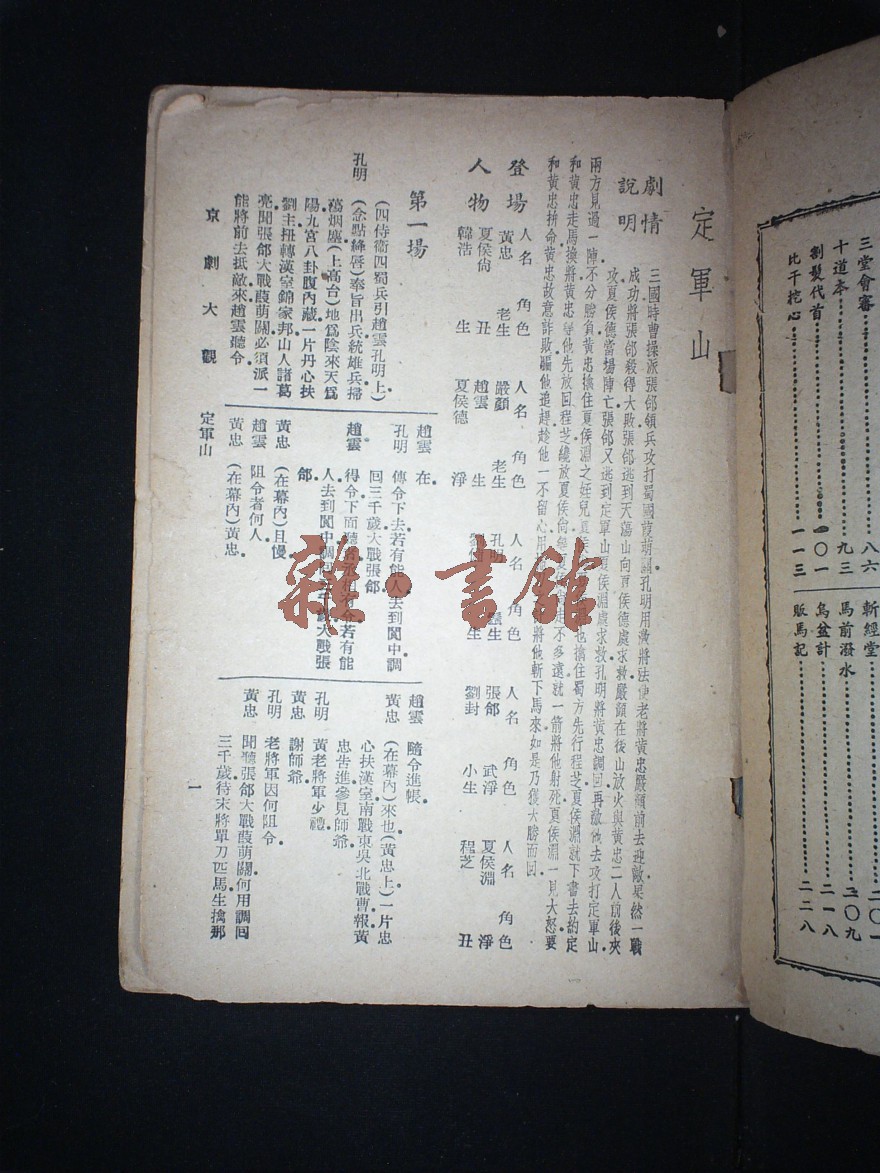 定軍山
劇情
說明
三國時曹操派張郃領兵攻打蜀國葭萌關孔明用激將法使老將黃忠嚴顏前去迎敵果然一戰
成功將張郃殺得大敗張郃逃到天蕩山向夏侯德處求救嚴顏在後山放火與黃忠二人前後夾
攻夏侯德當場陣亡張郃又逃到定軍山夏侯淵處求救孔明將黃忠調回再激他去攻打定軍山
兩方見過一陣不分勝負黃忠擒住夏侯淵之姪兒夏侯尙夏侯淵也擒住蜀方先行程芝夏侯淵就下書去約定
和黃忠走馬換將黃忠等他先放回程芝纔放夏侯尙
不多遠就一箭將他射死夏侯淵一見大怒要
和黃忠拚命黃忠故意詐敗騙他追趕趁他一不留心用
計將他斬下馬來如是乃獲大勝而回
登場
人物
人名 角色 人名 角色 人名 角色 人名 角色 人名 角色
黃忠 老生 嚴顏 老生 孔明 生 張郃 武淨 夏侯淵 淨
夏侯尙 丑 趙雲 生 生 劉封 小生 程芝 丑
韓浩 生 夏侯德 淨
第一場
(四侍衛四蜀兵引趙雲孔明上)
孔明 (念點絳唇)奉旨出兵統雄兵掃
萬烟塵(上高台)地爲陰來天爲
陽九宮八卦腹內藏一片丹心扶
劉主扭轉漢室錦家邦山人諸葛
亮聞張郃大戰葭萌關必須派一
能將前去抵敵來趙雲聽令
趙雲 在
孔明 傳令下去若有能人去到閬中調
回三千歲大戰張郃
趙雲 得令下面聽者丞相有令若有能
人去到閬中調回三千歲大戰張
郃
黃忠 (在幕內)且慢
趙雲 阻令者何人
黃忠 (在幕內)黃忠
趙雲 隨令進帳
黃忠 (在幕內)來也(黃忠上)一片忠
心扶漢室南戰東吳北戰曹報黃
忠告進參見師爺
孔明 黃老將軍少禮
黃忠 謝師爺
孔明 老將軍因何阻令
黃忠 聞聽張郃大戰葭萌關何用調回
三千歲待末將單刀匹馬生擒那
京劇大觀 定軍山 一
三堂會審 八六
十道本 九三
割髮代首 一〇一
比干挖心 一一三
斬經堂 二〇一
馬前潑水 二〇九
烏盆計 二一八
販馬記 二二八
雜·書館